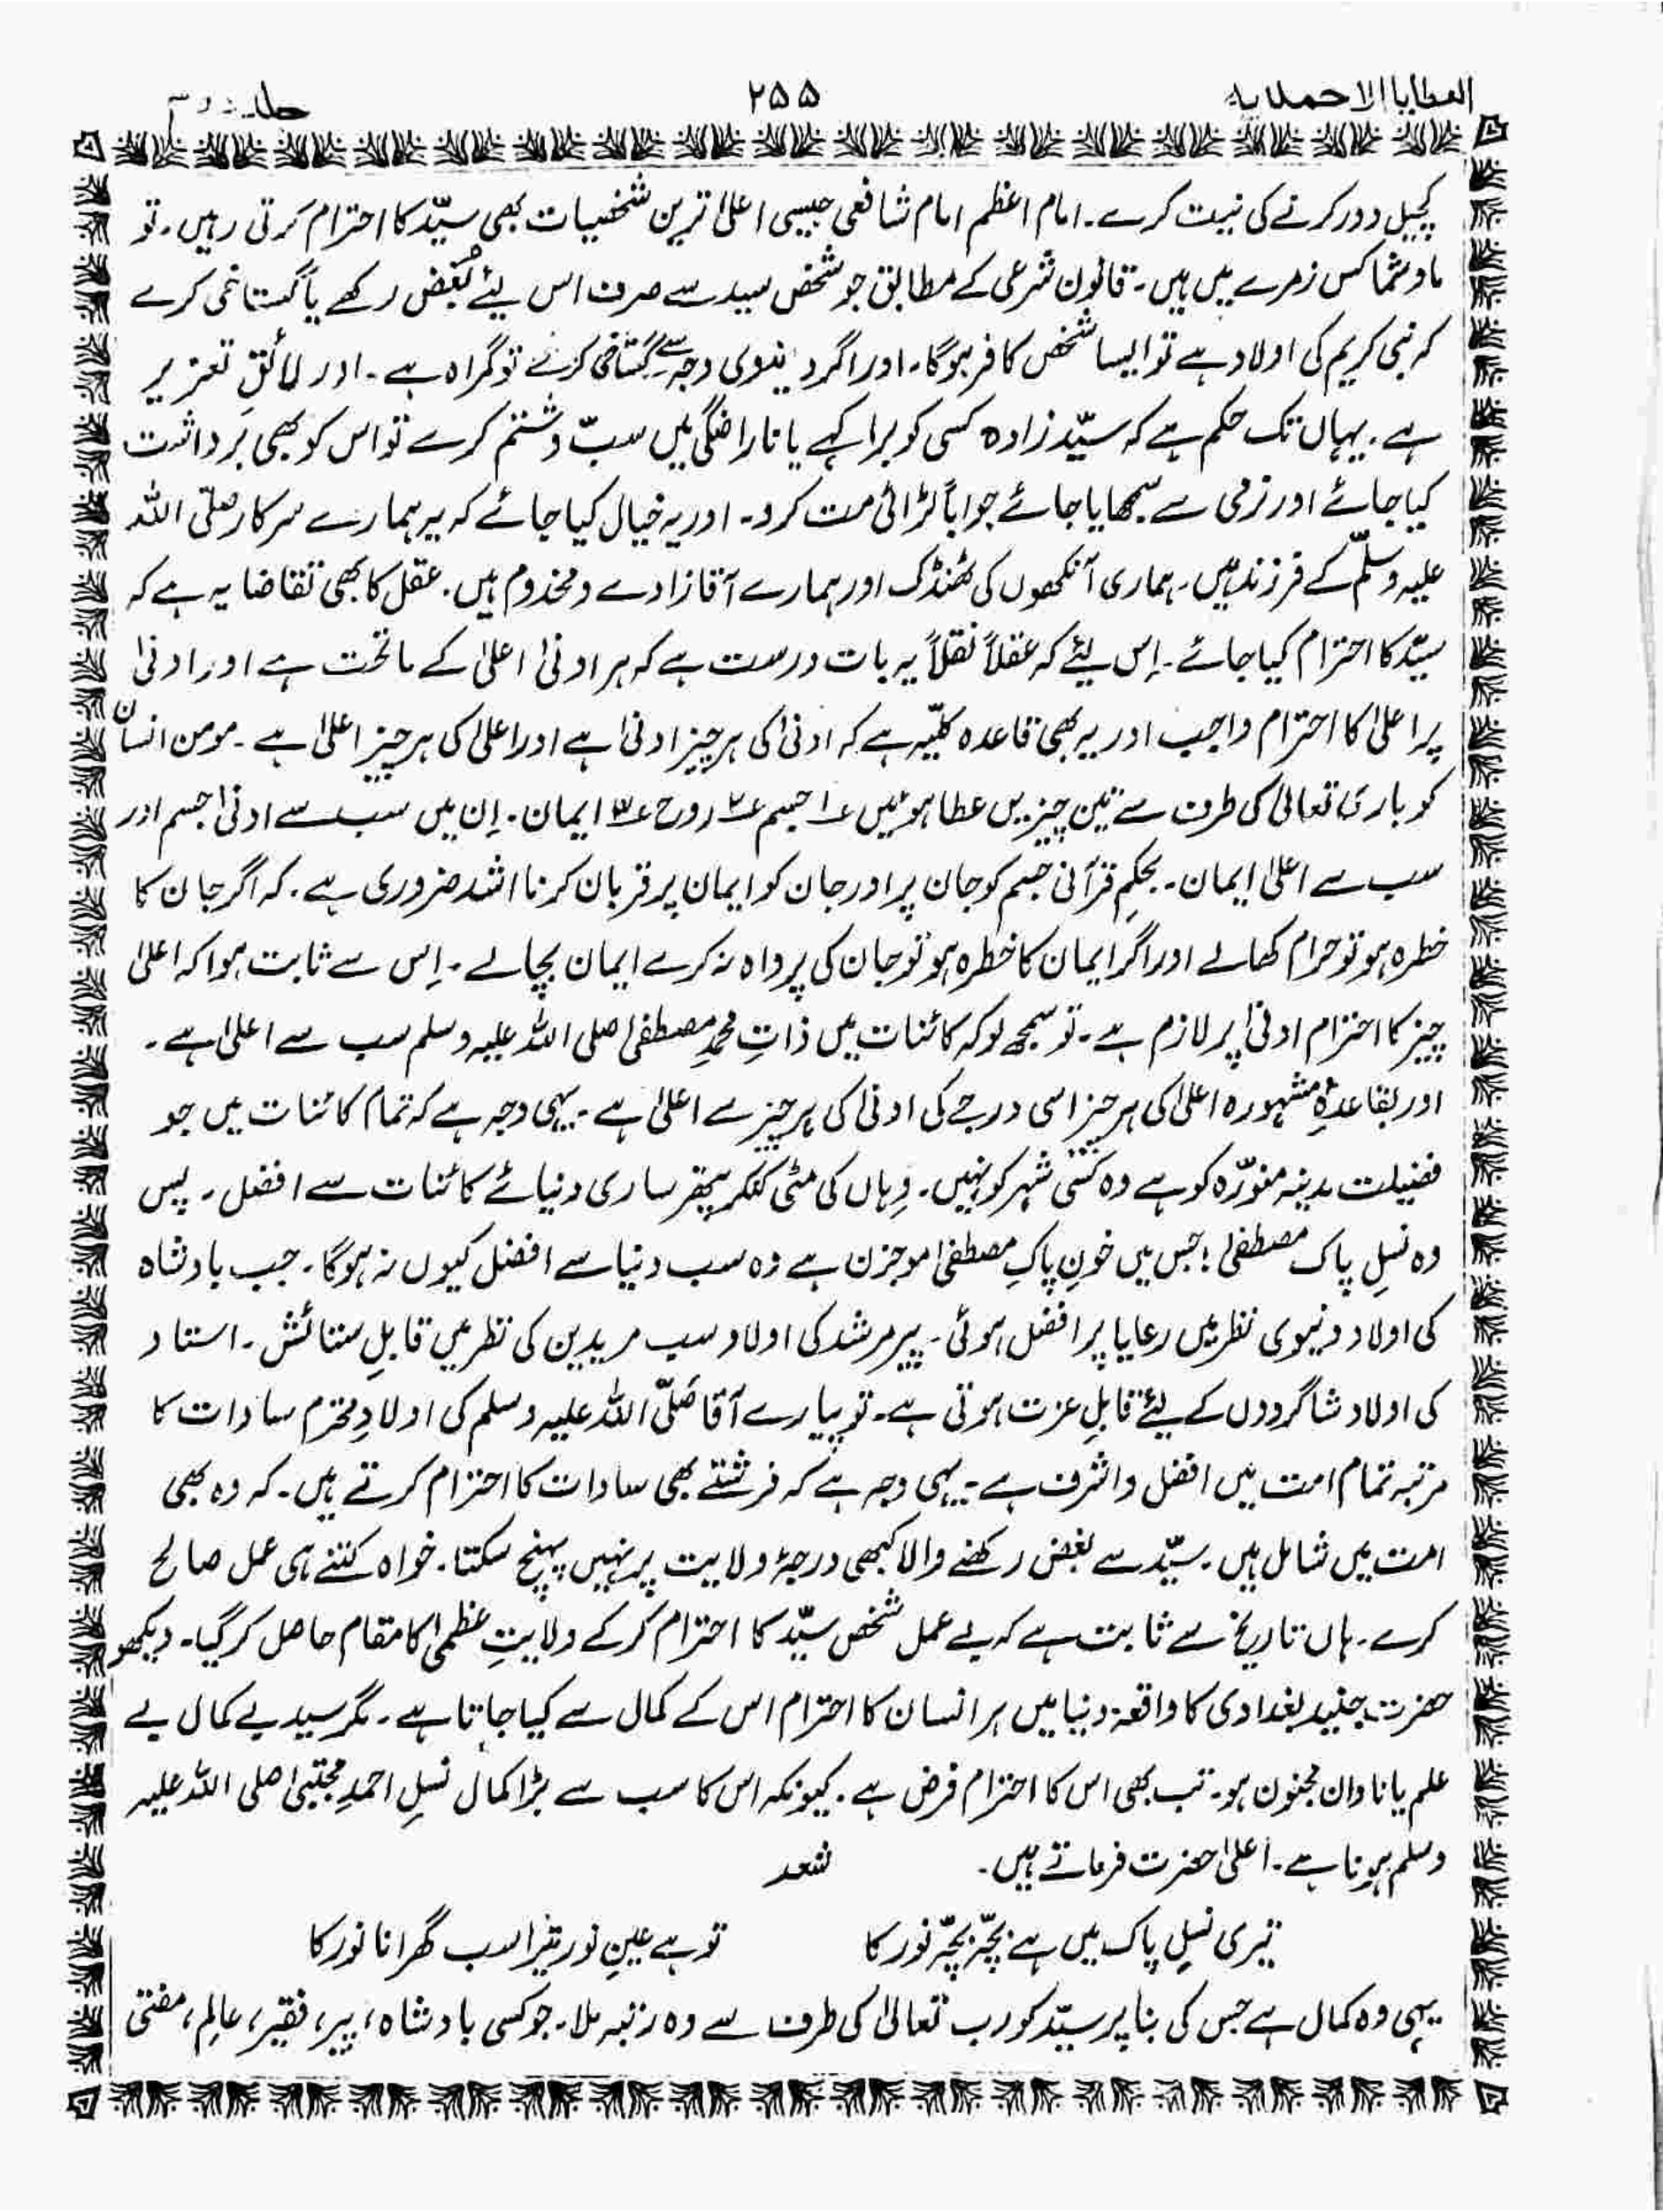 العطایا الاحمدیہ ۲۵۵ جلد دوم
کچیل دور کرنے کی نیت کرے۔ امام اعظم امام شافعی جیسی اعلیٰ ترین شخصیات بھی سیّد کا احترام کرتی رہیں۔ تو
ما و شما کس زمرے میں ہیں۔ قانون شرعی کے مطابق جو شخص سید سے صرف اس لیئے بُغض رکھے یا گستاخی کرے
کہ نبی کریم کی اولاد ہے تو ایسا شخص کافر ہوگا۔ اور اگر دیندوی وجہ سے گستاخی کرے تو گمراہ ہے۔ اور لائقِ تعزیر
ہے۔ یہاں تک حکم ہے کہ سیّد زادہ کسی کو برا کہے یا ناراضگی میں سبّ و شتم کرے تو اس کو بھی برداشت
کیا جائے اور نرمی سے سمجھایا جائے جواباً لڑائی مت کرو۔ اور یہ خیال کیا جائے کہ یہ ہمارے سرکار صلّی اللہ
علیہ وسلّم کے فرزند ہیں۔ ہماری آنکھوں کی ٹھنڈک اور ہمارے آقا زادے و مخدوم ہیں۔ عقل کا بھی تقاضا یہ ہے کہ
سیّد کا احترام کیا جائے۔ اِس لیئے کہ عقلاً نقلاً یہ بات درست ہے کہ ہر ادنیٰ اعلیٰ کے ماتحت ہے اور ادنیٰ
پر اعلیٰ کا احترام واجب اور یہ بھی قاعدہ کلیّہ ہے کہ ادنیٰ کی ہر چیز ادنیٰ ہے اور اعلیٰ کی ہر چیز اعلیٰ ہے۔ مومن انسان
کو باری تعالیٰ کی طرف سے تین چیزیں عطا ہوئیں ۱؎ جسم ۲؎ روح ۳؎ ایمان۔ اِن میں سب سے ادنیٰ جسم اور
سب سے اعلیٰ ایمان۔ بحکمِ قرآنی جسم کو جان پر اور جان کو ایمان پر قربان کرنا اشد ضروری ہے۔ کہ اگر جان کا
خطرہ ہو تو حرام کھالے اور اگر ایمان کا خطرہ ہو تو جان کی پرواہ نہ کرے ایمان بچالے۔ اِس سے ثابت ہوا کہ اعلیٰ
چیز کا احترام ادنیٰ پر لازم ہے۔ تو سمجھ لو کہ کائنات میں ذاتِ محمدِ مصطفیٰ صلی اللہ علیہ وسلم سب سے اعلیٰ ہے۔
اور بقاعدۂ مشہورہ اعلیٰ کی ہر چیز اسی درجے کی ادنیٰ کی ہر چیز سے اعلیٰ ہے۔ یہی وجہ ہے کہ تمام کائنات میں جو
فضیلت مدینہ منوّرہ کو ہے وہ کسی شہر کو نہیں۔ وہاں کی مٹی کنکر پتھر ساری دنیائے کائنات سے افضل۔ پس
وہ نسلِ پاک مصطفیٰ؛ جس میں خونِ پاکِ مصطفیٰ موجزن ہے وہ سب دنیا سے افضل کیوں نہ ہوگا۔ جب بادشاہ
کی اولاد دنیوی نظر میں رعایا پر افضل ہوئی۔ پیر مرشد کی اولاد سب مریدین کی نظر میں قابلِ ستائش۔ استاد
کی اولاد شاگردوں کے لیئے قابلِ عزت ہوتی ہے۔ تو پیارے آقا صَلّی اللہ علیہ وسلم کی اولادِ محترم سادات کا
مرتبہ تمام امت میں افضل و اشرف ہے۔ یہی وجہ ہے کہ فرشتے بھی سادات کا احترام کرتے ہیں۔ کہ وہ بھی
امت میں شامل ہیں۔ سیّد سے بغض رکھنے والا کبھی درجۂ ولایت پر نہیں پہنچ سکتا۔ خواہ کتنے ہی عمل صالح
کرے۔ ہاں تاریخ سے ثابت ہے کہ بے عمل شخص سیّد کا احترام کر کے ولایتِ عظمیٰ کا مقام حاصل کر گیا۔ دیکھو
حضرت جنید بغدادی کا واقعہ دنیا میں ہر انسان کا احترام اس کے کمال سے کیا جاتا ہے۔ مگر سید بے کمال بے
علم یا نادان مجنون ہو۔ تب بھی اس کا احترام فرض ہے۔ کیونکہ اس کا سب سے بڑا کمال نسلِ احمدِ مجتبیٰ صلی اللہ علیہ
وسلم ہونا ہے۔ اعلیٰ حضرت فرماتے ہیں۔ شعر
تیری نسلِ پاک میں ہے بچّہ بچّہ نور کا تو ہے عینِ نور تیرا سب گھرانا نور کا
یہی وہ کمال ہے جس کی بنا پر سیّد کو رب تعالیٰ کی طرف سے وہ رتبہ ملا۔ جو کسی بادشاہ، پیر، فقیر، عالِم، مفتی